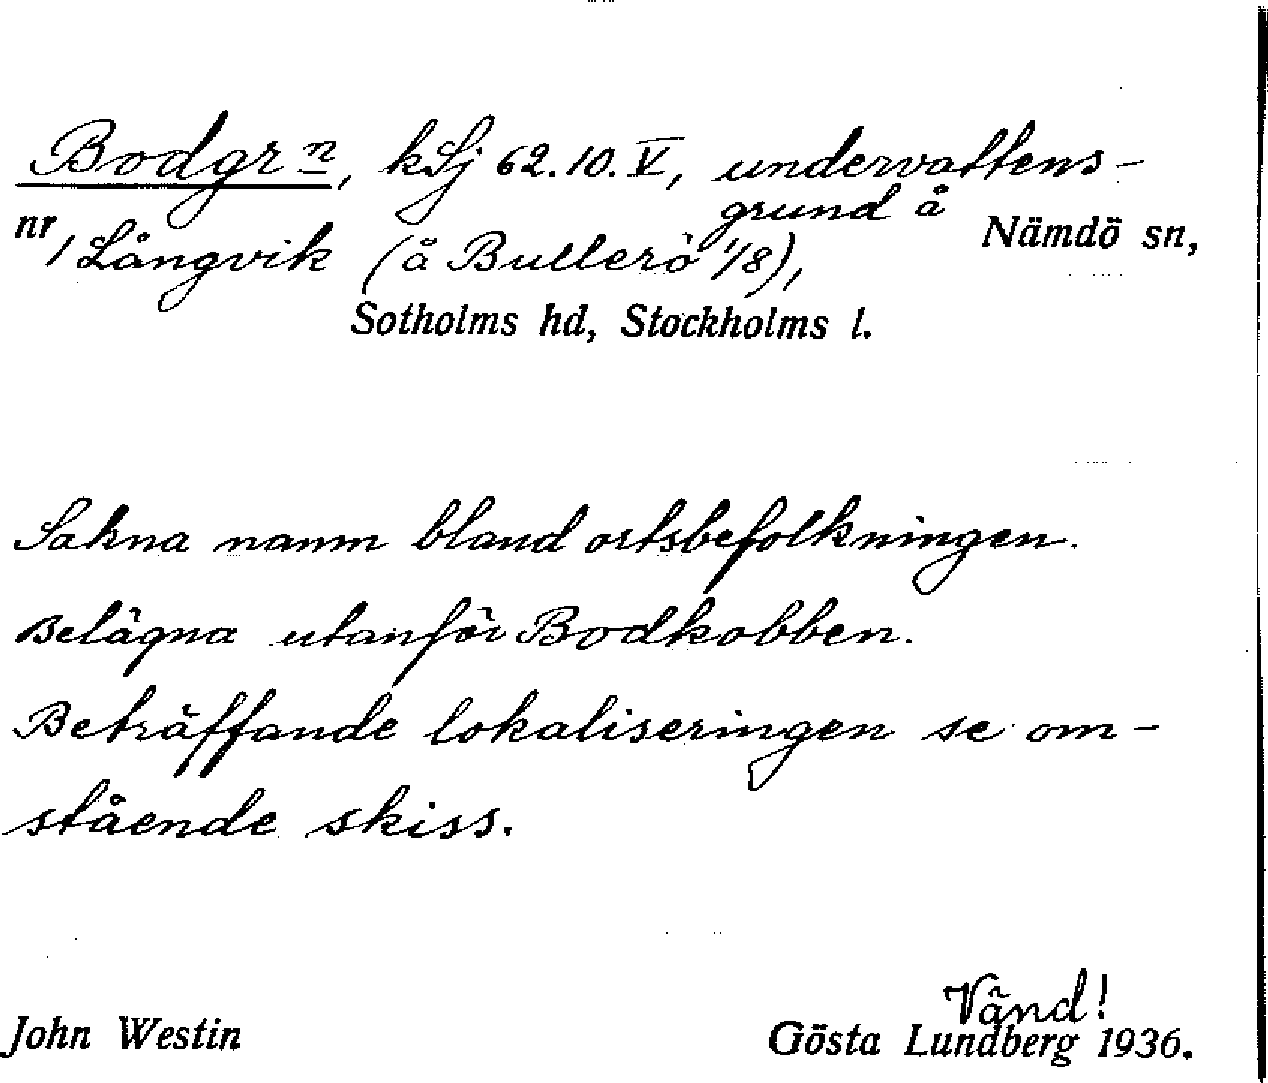 Bodgrn, kSj 62.10.V, undervattens-
grund å
nr / Långvik (å Bullerö 1/8), Nämdö sn,
Sotholms hd, Stockholms l.
Sakna namn bland ortsbefolkningen.
Belägna utanför Bodkobben.
Beträffande lokaliseringen se om-
stående skiss.
Vänd!
John Westin Gösta Lundberg 1936.